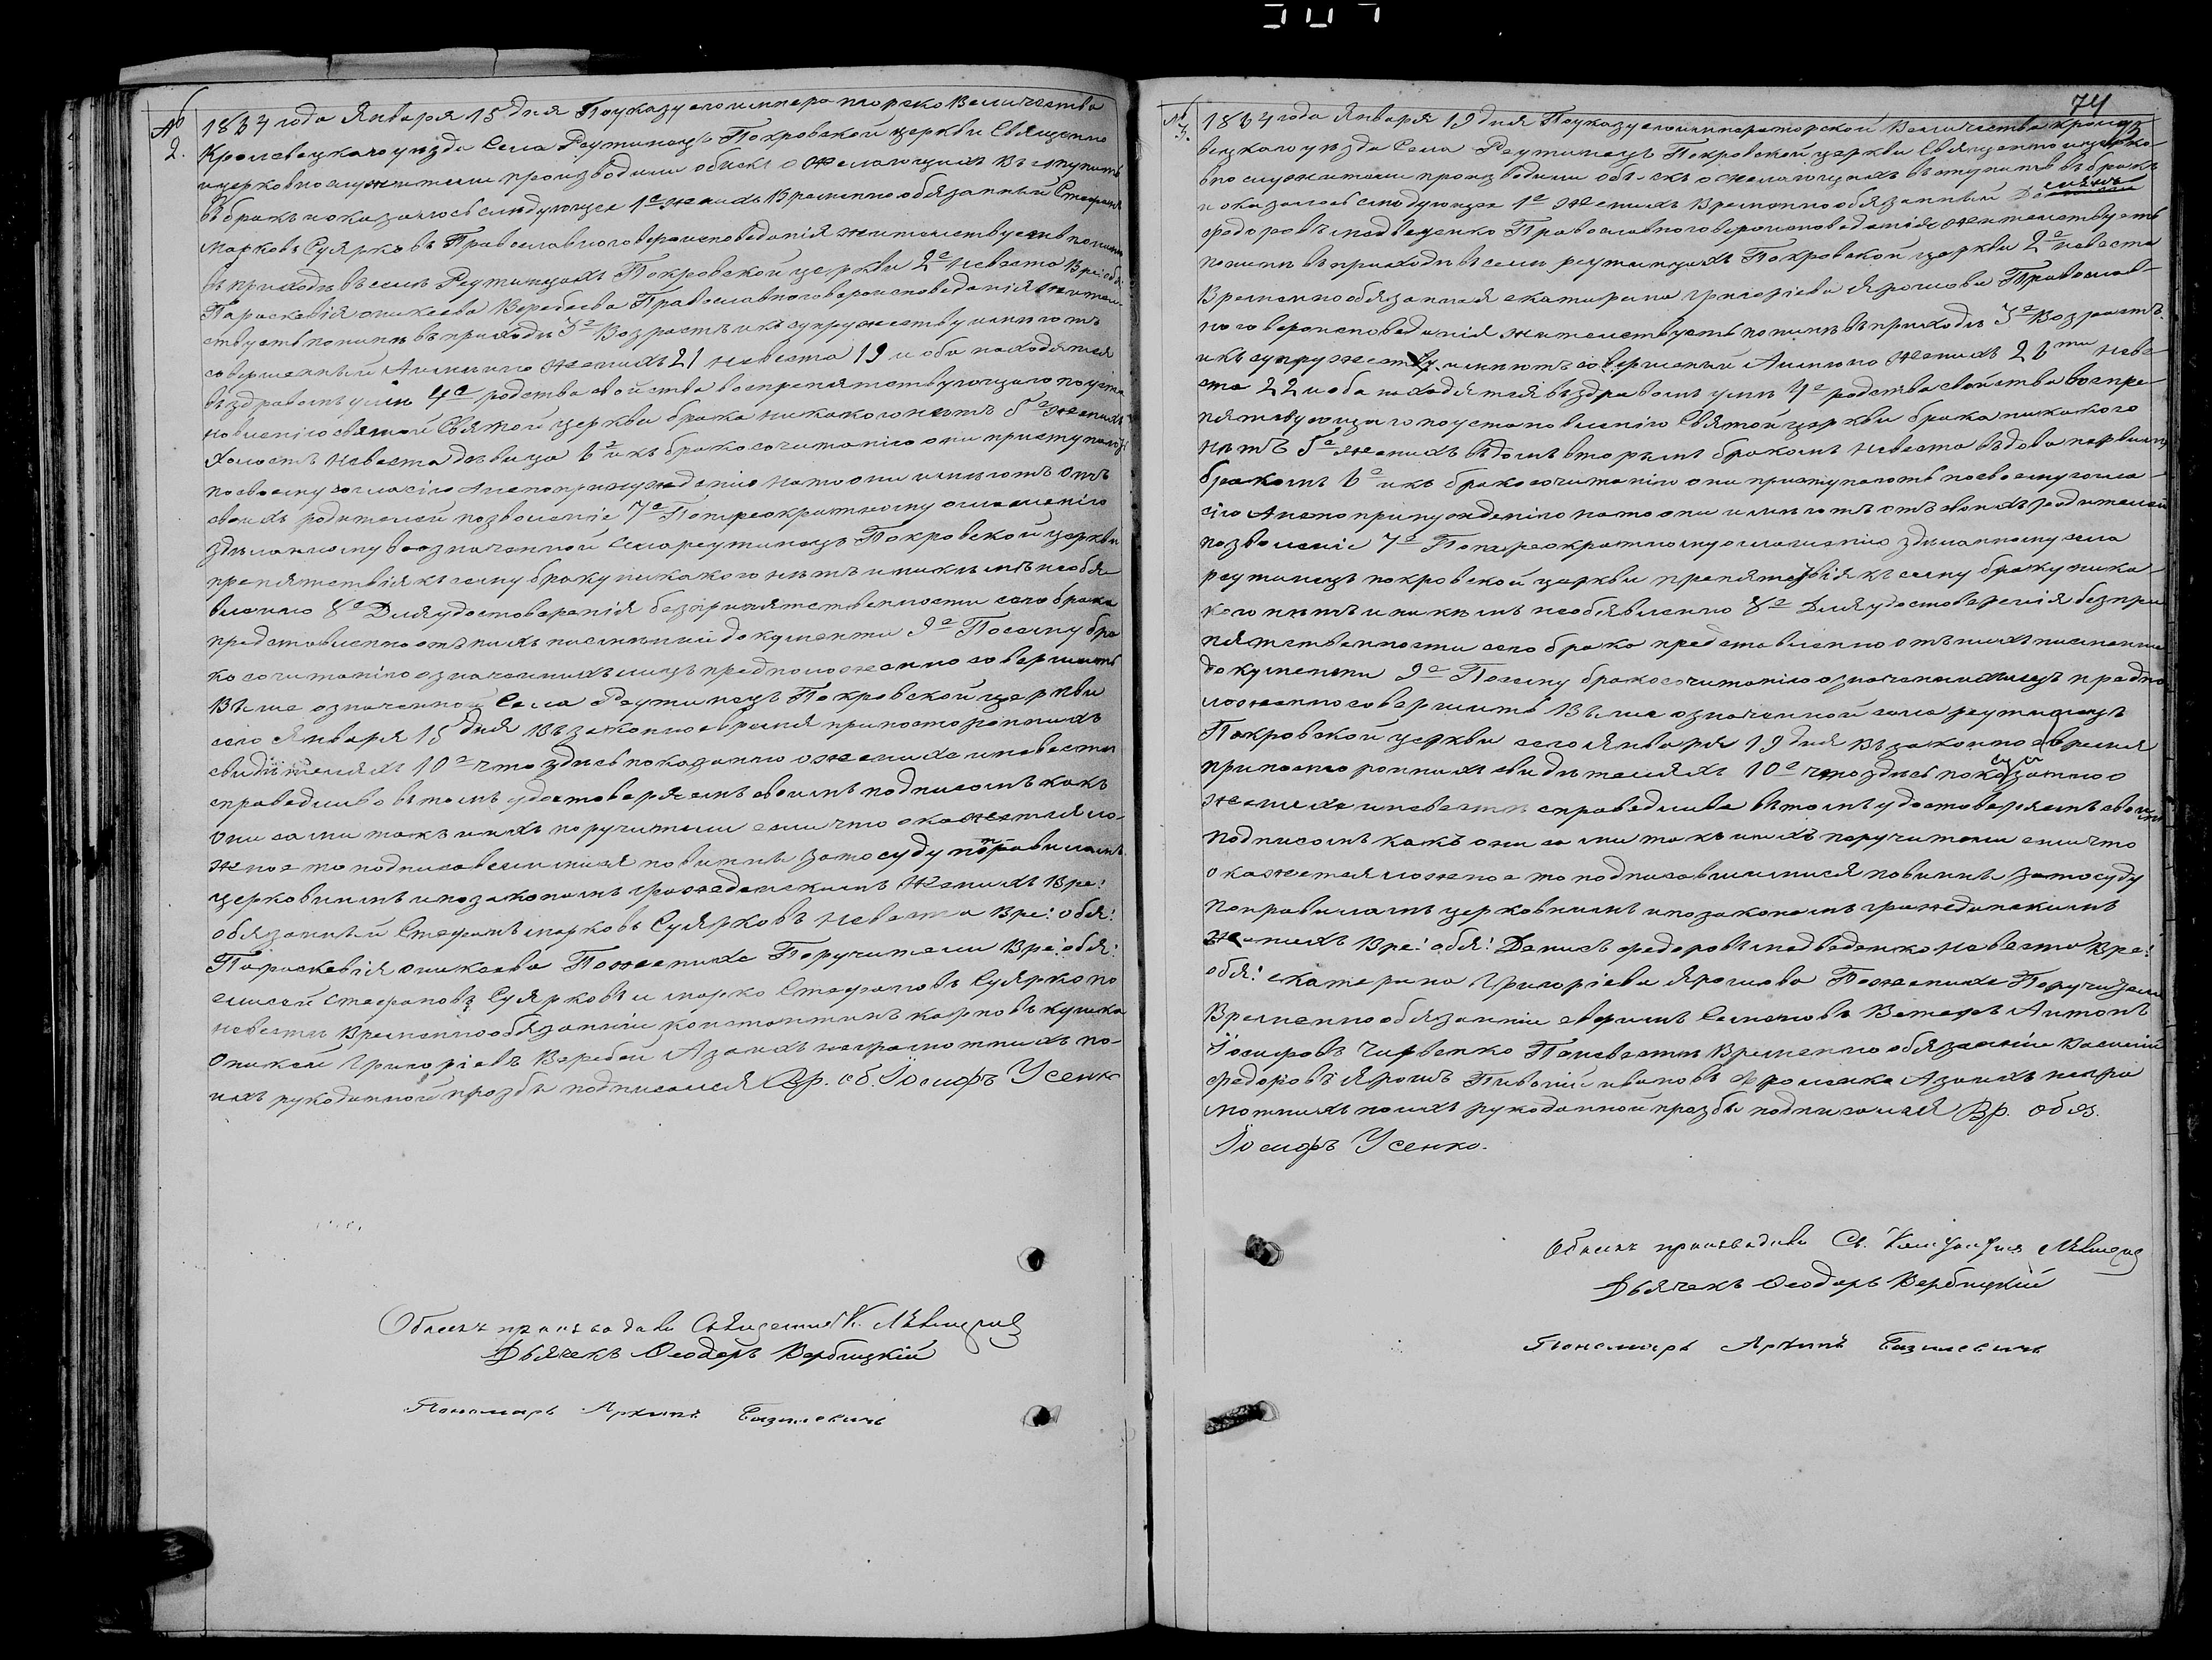 № 2.
1864 года Января 15 дня По указу его императорско Величества
Кролевецкого уезда Села Реутинецъ Покровской церкви Священно
и церковнослужители производили обыскъ о желающихъ вступить
въ бракъ и оказалось следующее 1е женихъ Временнообязанный Стефанъ
Марковъ Суярковъ Православного вероисповеданія жительствуетъ поныне
въ приходе въ селе Реутинцахъ Покровской церкви 2е невеста Вре: обя:
Параскевія оникеева Воробьева Православного вероисповеданія житель-
ствуетъ поныне въ приходе 3е Возрастъ и къ супружеству имеютъ
совершенный А именно женихъ 21 невеста 19 и оба находятся
въ здравомъ уме 4е родства свойства воспрепятствующаго по уста
новленію Святой церкви брака никакого нетъ 5е женихъ
холостъ невеста девица 6е и къ бракосочитанію они приступаютъ
по своему согласію А не по принужденію на то они имеютъ отъ
своихъ родителей позволеніе 7е По троекратному оглашенію
зделанному в означенной Села реутинецъ Покровской церкви
препятствія къ сему браку никакого нетъ и никемъ не обья-
вленно 8е Для удостоверенія безприпятственности сего брака
представленно отъ нихъ писменный документи 9е По сему бра
косочитанію означенныхъ лицъ предположенно совершить
Выше означенной Села Реутинецъ Покровской церкви
сего Января 15 дня въ законно время при посторонныхъ
свидетеляхъ 10е что здесь показанно о женихе и невесте
справедливо въ томъ удостоверяемъ своимъ подписомъ какъ
они сами такъ и ихъ поручители если что окажется ло-
жное то подписавшимися повинны зато суду по правиламъ
церковнымъ и по законамъ гражданскимъ Женихъ Вре:
обязанный Стефанъ марковъ Суярковъ невеста Вре: обя:
Параскевія оникеева По женихе Поручители Вре: обя:
елисей Стефановъ Суярковъ и марко Стефановъ Суярко по
невесте Временнообязанніи константинъ карповъ кушка
Оникей Григоріевъ Воробей А за ихъ неграмотныхъ по
ихъ рукоданной прозбе подписался Вр. об. Іосифъ Усенко
Обыскъ производили Священникъ К. Левицкій
Дьячекъ Феодоръ Вербицкій
Пономарь Архипъ Базилевичъ
74
№ 3.
1864 года Января 19 дня По указу его императорской Величества кроле-
вецкаго уезда Села Реутинецъ Покровской церкви Священно и церко-
внослужители производили обыскъ о желающихъ вступить въ бракъ
и оказалось следующее 1е Женихъ Временнообязанный
федоровъ медведенко Православного вероисповеданія жительствуетъ
поныне въ приходе въ селе реутинцахъ Покровской церкви 2е невеста
Временнообязанная екатерина григоріева Ярошова Православ-
ного вероисповеданія жительствуетъ поныне въ приходе 3е Возрастъ
и къ супружеству имеютъ совершенный А именно женихъ 26ти неве-
ста 22 и оба находятся въ здравомъ уме 4е родства свойства воспре-
пятствующаго по установленію Святой церкви брака никакого
нетъ 5е женихъ вдовъ вторымъ бракомъ невеста вдова первымъ
бракомъ 6е и къ бракосочитанію они приступаютъ по своему согла-
сію А не по принужденію на то они имеютъ отъ своихъ родителей
позволеніе 7е По троекратному оглашенію зделанному села
реутинецъ покровской церкви препятствія къ сему браку ника-
кого нетъ и никемъ не обявленно 8е Для удостоверенія безпри
пятственности сего брака представленно отъ нихъ писменни
документи 9е По сему бракосочитанію означенныхъ лицъ предпо
ложенно совершить Выше означенной села реутинецъ
Покровской церкви сего января 19 дня въ законно время
при посторонныхъ свидетеляхъ 10е что здесь показанно о
женихе и невесте справедливо въ томъ удостоверяемъ своимъ
подписомъ какъ они сами такъ и ихъ поручители если что
окажется ложное то подписавшимися повинны зато суду
по правиламъ церковнымъ и по законамъ гражданскимъ
женихъ Вре: обя: Денисъ федоровъ медведенко невеста Вре:
обя: екатерина Григоріева Ярошова По женихе Поручители
Временнообязанніи ефимъ Семеновъ Антонъ
Іосифовъ Чирвенко По невесте Временнообязанніи василій
федоровъ Ярошъ ивановъ фроленко А за ихъ негра
мотныхъ по ихъ рукоданной прозбе подписался Вр. обяз.
Іосифъ Усенко.
Обыскъ производили Св. Константинъ Левицкій
Дьячекъ Феодоръ Вербицкій
Пономарь Архипъ Базилевичъ